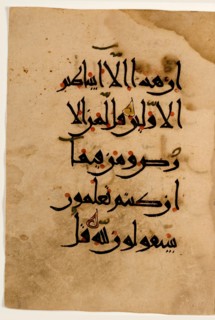 ان هذا الا اسطير
الاولين قل لمن الا
رض ومن فيها
ان كنتم تعلمون
سيقولون لله قل